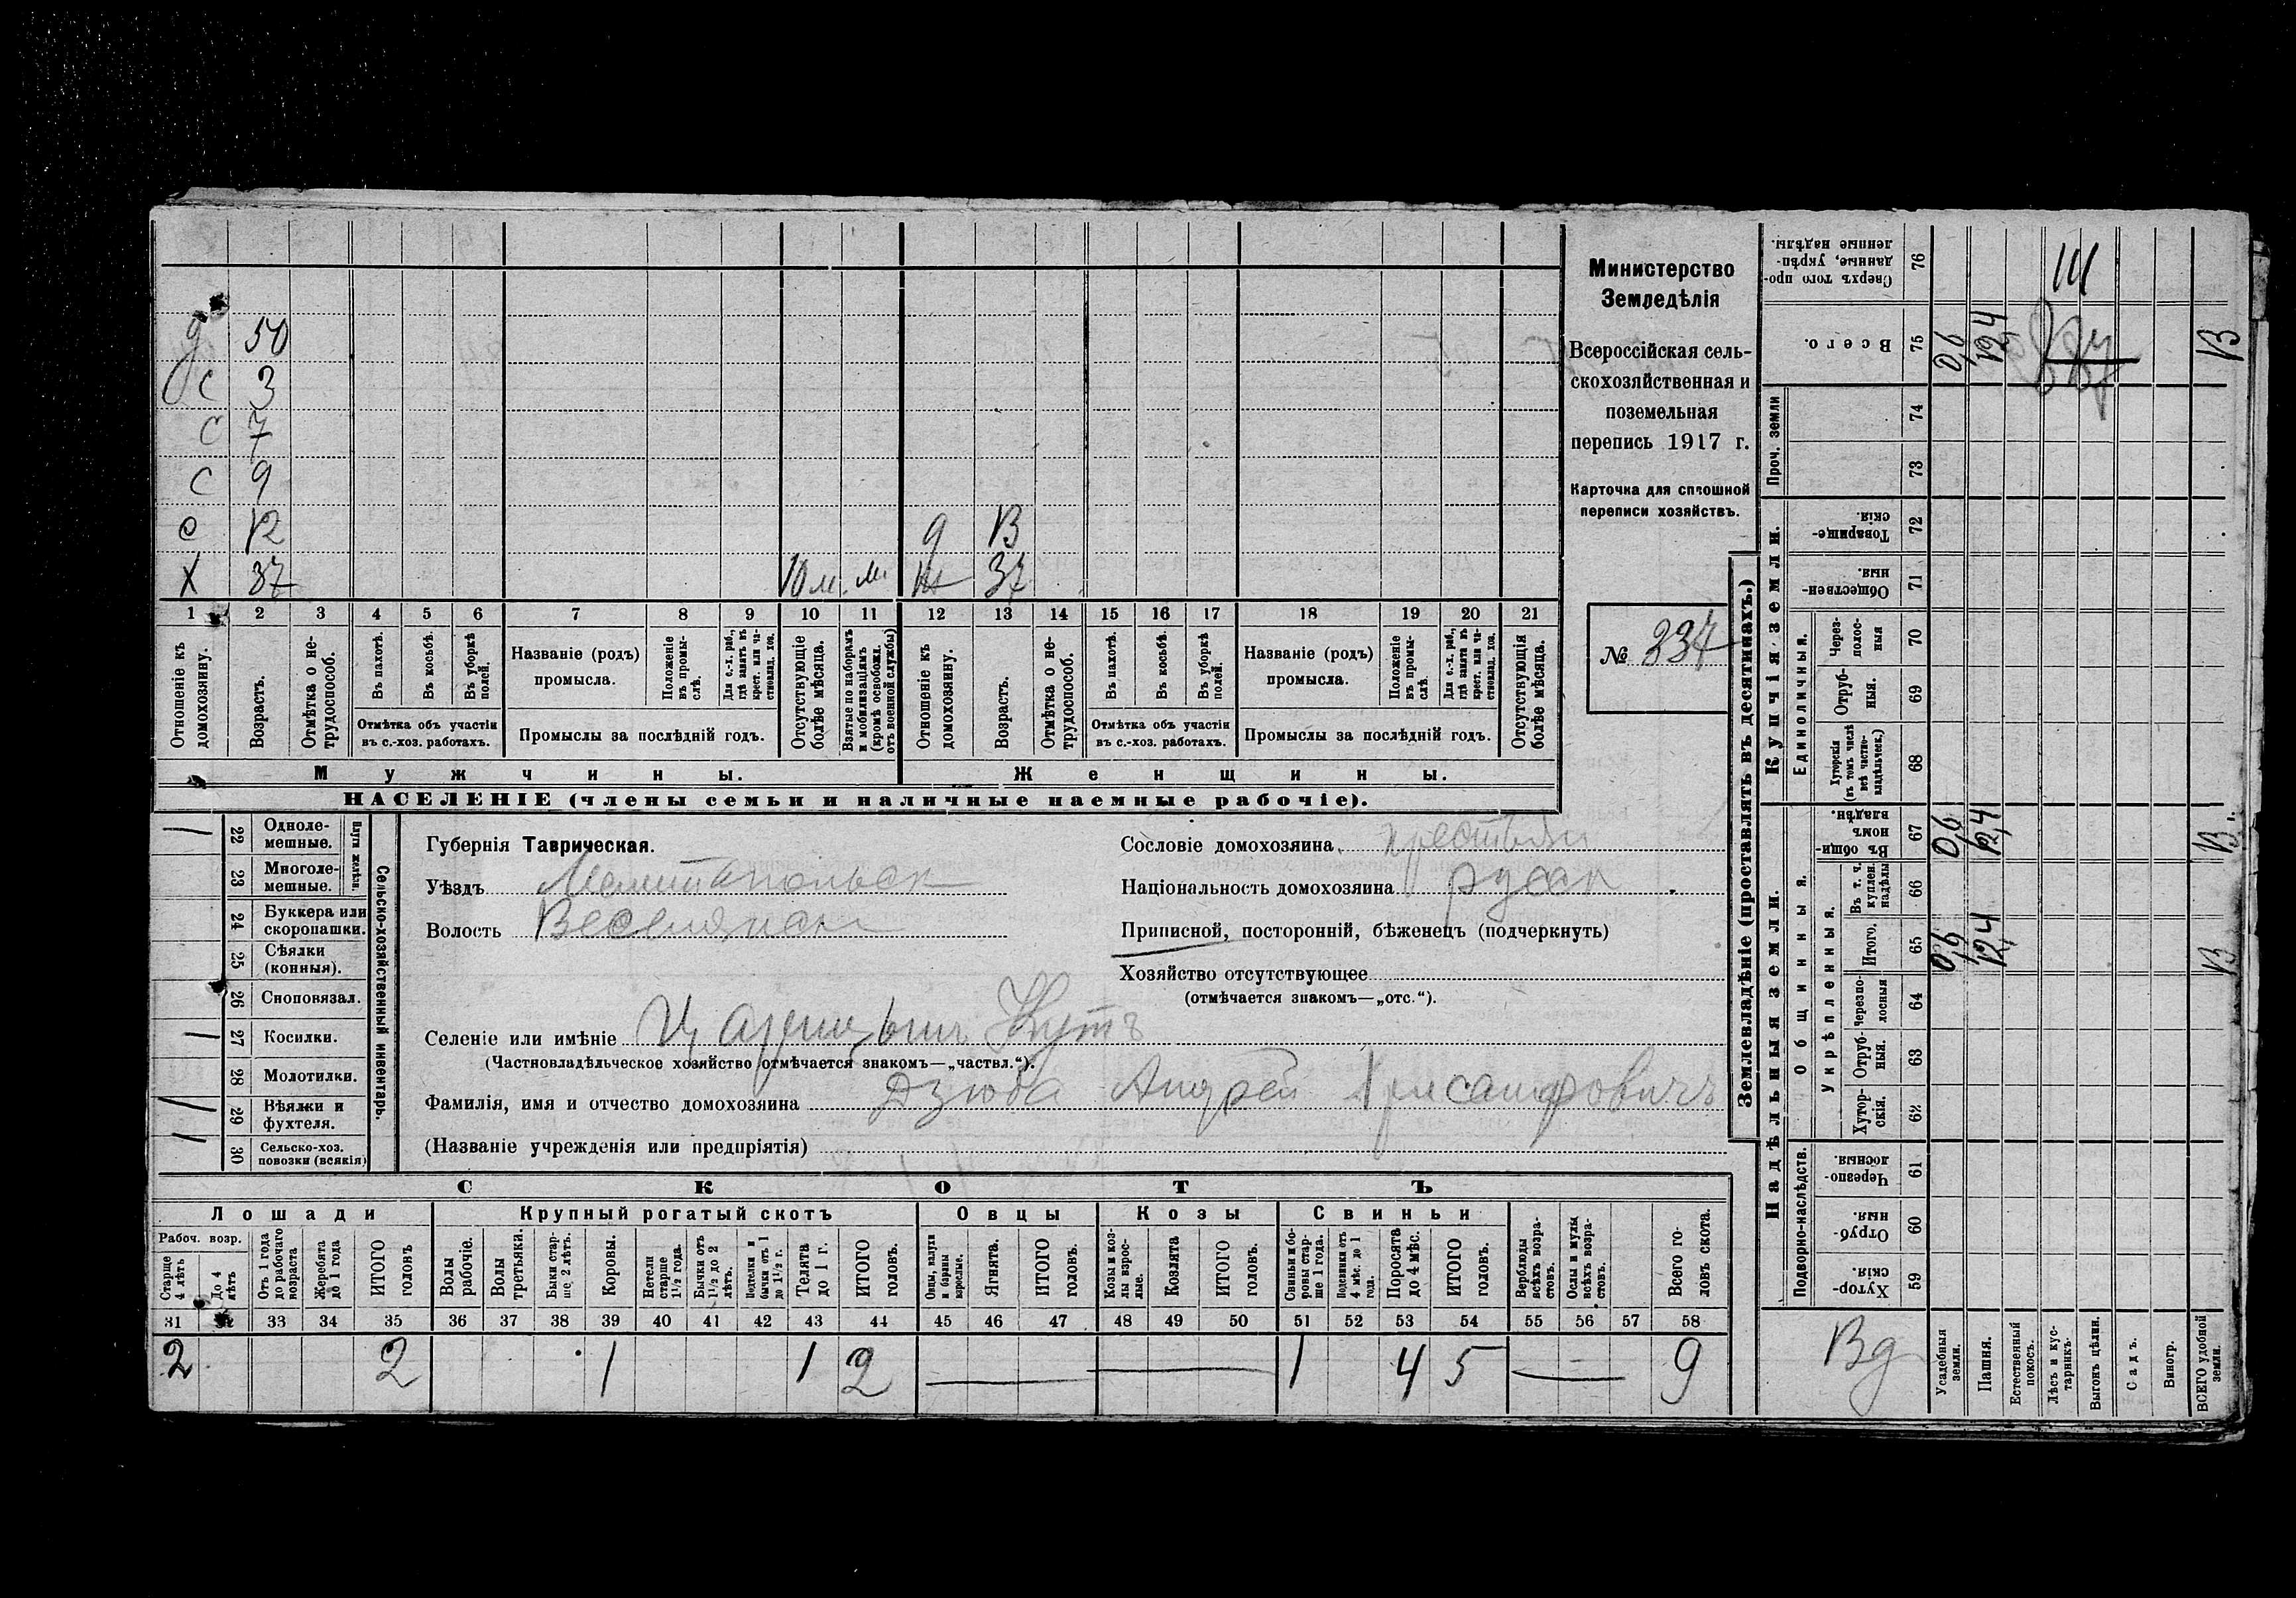 Министерство
Земледѣлія
Всероссійская сель-
скохозяйственная и
поземельная
перепись 1917 г.
Карточка для сплошной
переписи хозяйствъ.
№ 237
д 50
с 3
с 7
с 9
с 12
х 37 10 м. м.
д 13
ж 37
1 2 3 4 5 6 7 8 9 10 11 12 13 14 15 16 17 18 19 20 21
Отношеніе къ домохозяину.
Возрастъ.
Отмѣтка о не-трудоспособ.
Въ пахотѣ.
Въ косьбѣ.
Въ уборкѣ полей.
Отмѣтка объ участіи въ с.-хоз. работахъ.
Названіе (родъ) промысла.
Положеніе въ промы-слѣ.
Для с.-х. раб., гдѣ занятъ въ крест. или ча-стновлад. хоз.
Промыслы за послѣдній годъ.
Отсутствующіе болѣе мѣсяца.
Взятые по наборамъ и мобилизаціямъ (кромѣ освобожд. отъ военной службы)
Отношеніе къ домохозяину.
Возрастъ.
Отмѣтка о не-трудоспособ.
Въ пахотѣ.
Въ косьбѣ.
Въ уборкѣ полей.
Отмѣтка объ участіи въ с.-хоз. работахъ.
Названіе (родъ) промысла.
Положеніе въ промы-слѣ.
Для с.-х. раб., гдѣ занята въ крест. или ча-стновлад. хоз.
Промыслы за послѣдній годъ.
Отсутствующія болѣе мѣсяца.
Мужчины.
Женщины.
НАСЕЛЕНІЕ (члены семьи и наличные наемные рабочіе).
Сельско-хозяйственный инвентарь.
Плуги желѣзн.
22 Одноле-мешные.
23 Многоле-мешные.
24 Буккера или скоропашки.
25 Сѣялки (конныя).
26 Сноповязал.
27 Косилки.
28 Молотилки.
29 Вѣялки и фухтеля.
30 Сельско-хоз. повозки (всякія)
Губернія Таврическая.
Уѣздъ Мелитопольск
Волость Веселянск
Сословіе домохозяина крестьян
Національность домохозяина русск
Приписной, посторонній, бѣженецъ (подчеркнуть)
Хозяйство отсутствующее
(отмѣчается знакомъ—„отс.“).
Селеніе или имѣніе Царицынъ Кутъ
(Частновладѣльческое хозяйство отмѣчается знакомъ—„частвл.“).
Фамилія, имя и отчество домохозяина Дзюба Андрей Хрисанфовичъ
(Названіе учрежденія или предпріятія)
СКОТЪ
Лошади
Крупный рогатый скотъ
Овцы
Козы
Свиньи
Рабоч. возр.
Старше 4 лѣтъ
До 4 лѣтъ
Отъ 1 года до рабочаго возраста
Жеребята до 1 года
ИТОГО головъ
Волы рабочіе.
Волы третьяки.
Быки стар-ше 2 лѣтъ.
Коровы.
Нетели старше 1½ года.
Бычки отъ 1½ до 2 лѣтъ.
Подтелки и бычки отъ 1 до 1½ г.
Телята до 1 г.
ИТОГО головъ.
Овцы, валухи и бараны взрослые.
Ягнята.
ИТОГО головъ.
Козы и коз-лы взрос-лые.
Козлята
ИТОГО головъ.
Свиньи и бо-ровы стар-ше 1 года.
Подсвинки отъ 4 мѣс. до 1 года.
Поросята до 4 мѣс.
ИТОГО головъ.
Верблюды всѣхъ возра-стовъ.
Ослы и мулы всѣхъ возра-стовъ.
Всего го-ловъ скота.
31 32 33 34 35 36 37 38 39 40 41 42 43 44 45 46 47 48 49 50 51 52 53 54 55 56 57 58
2 2 1 1 2 — — 1 4 5 — 9
Землевладѣніе (проставлять въ десятинахъ.)
Надѣльныя земли.
Купчія земли.
Проч. земли
Подворно-наслѣдств.
Общинныя.
Укрѣпленныя.
Единоличныя.
Сверхъ того про-данные, укрѣп-ленные надѣлы. 76
Всего. 75 0,6 12,4 13
74
73
Товарище-скія. 72
Обществен-ныя. 71
Через-полос-ныя 70
Отруб-ныя. 69
Хуторскія (въ томъ числѣ всѣ частно-владѣльческ.) 68
Въ общин-номъ владѣн. 67 0,6 12,4 13
Въ т. ч. куплен. надѣлы 66
Итого. 65 0,6 12,4 13
Черезпо-лосныя 64
Отруб-ныя. 63
Хутор-скія. 62
Черезпо-лосныя. 61
Отруб-ныя. 60
Хутор-скія. 59
Усадебныя земли.
Пашня.
Естественный покосъ.
Лѣсъ и кус-тарникъ.
Выгонъ цѣлин.
Садъ.
Виногр.
ВСЕГО удобной земли.